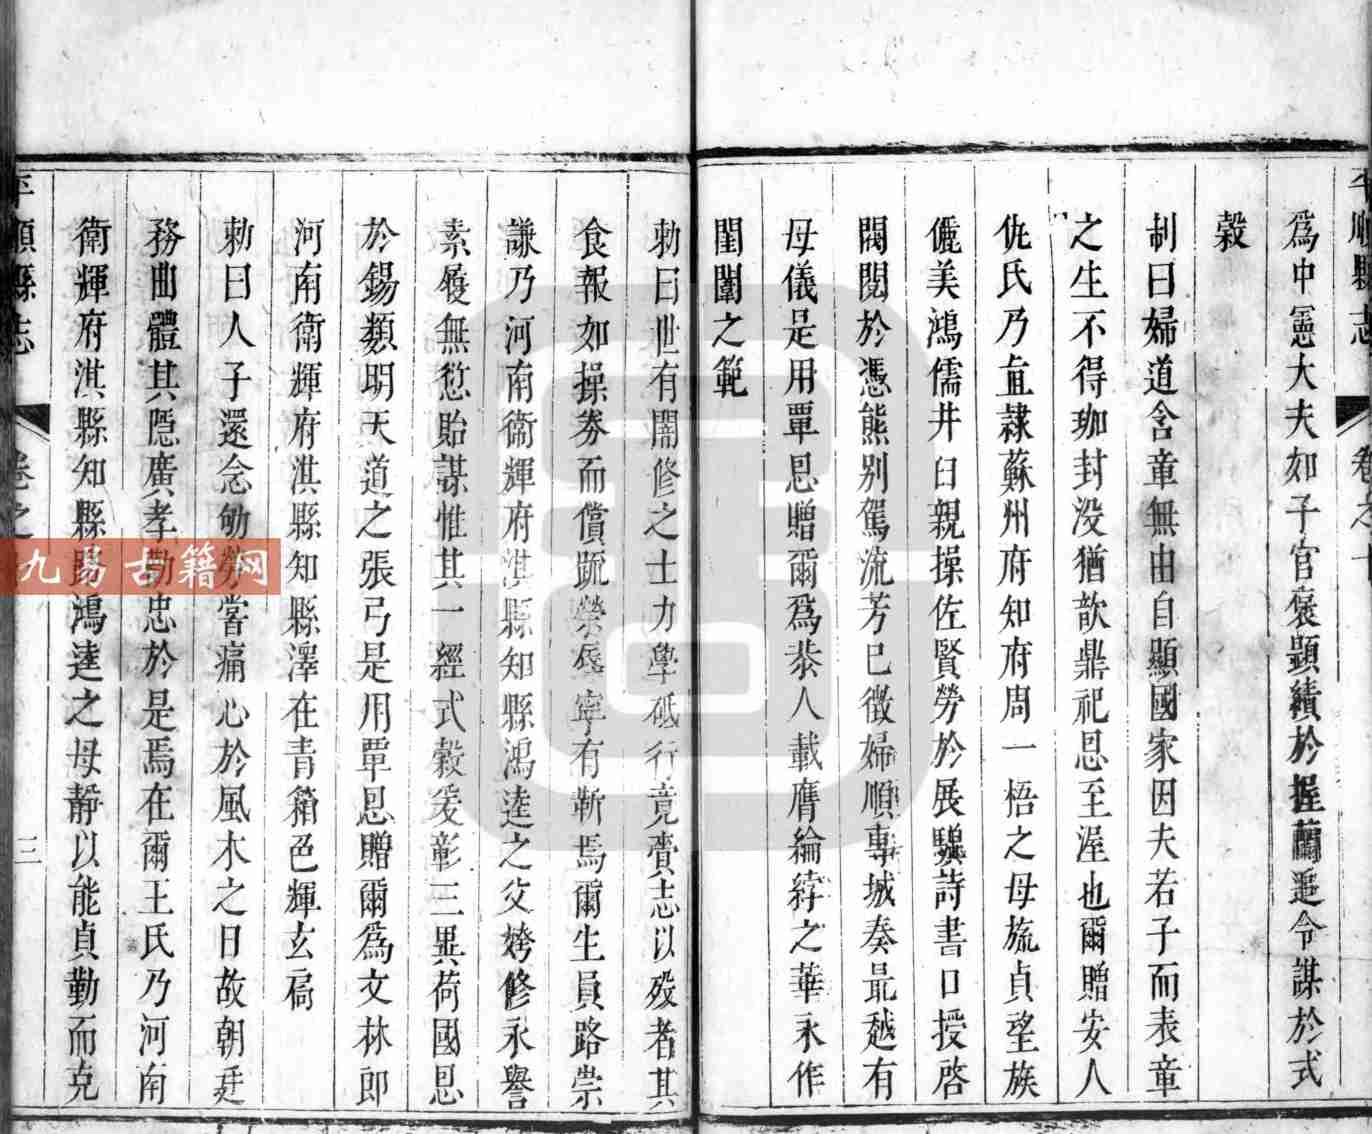 平順縣志
卷之十
為中憲大夫如子官褒顯績於握蘭遥令謀於式
穀
制曰婦道含章無由自顯國家因夫若子而表章
之生不得珈封没猶歆鼎祀恩至渥也爾贈安人
仇氏乃直隷蘇州府知府周一梧之母毓貞望族
儷美鴻儒井臼親操佐賢勞於展驥詩書口授啓
閥閲於憑熊别駕流芳已徵婦順專城奏最越有
母儀是用覃恩贈爾爲恭人載膺綸綍之華永作
閨闈之範
勅曰世有闇修之士力學砥行竟賫志以殁者其
食報如操劵而償䟽榮㢘寧有靳焉爾生員路崇
謙乃河南衞輝府淇縣知縣鴻逵之父娉修永譽
素履無愆貽謀惟其一經式穀爰彰三異荷國恩
於錫類明天道之張弓是用覃恩贈爾爲文林郎
河南衛輝府淇縣知縣澤在青箱色輝玄扃
勅曰人子還念劬勞嘗痛心於風木之日故朝廷
務曲體其隱廣孝勸忠於是焉在爾王氏乃河南
衛輝府淇縣知縣路鴻逵之母靜以能貞勤而克
平順縣志
卷之
三
九易古籍网